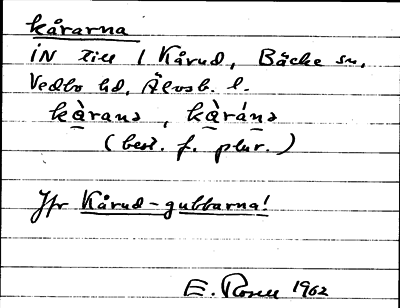 kårarna
IN till 1 Kårud, Bäcke sn,
Vedbo hd, Älvsb. l.
kàranə, kàránə
(best. f. plur.)
Jfr Kårud-gubbarna!
E. Rosell 1962